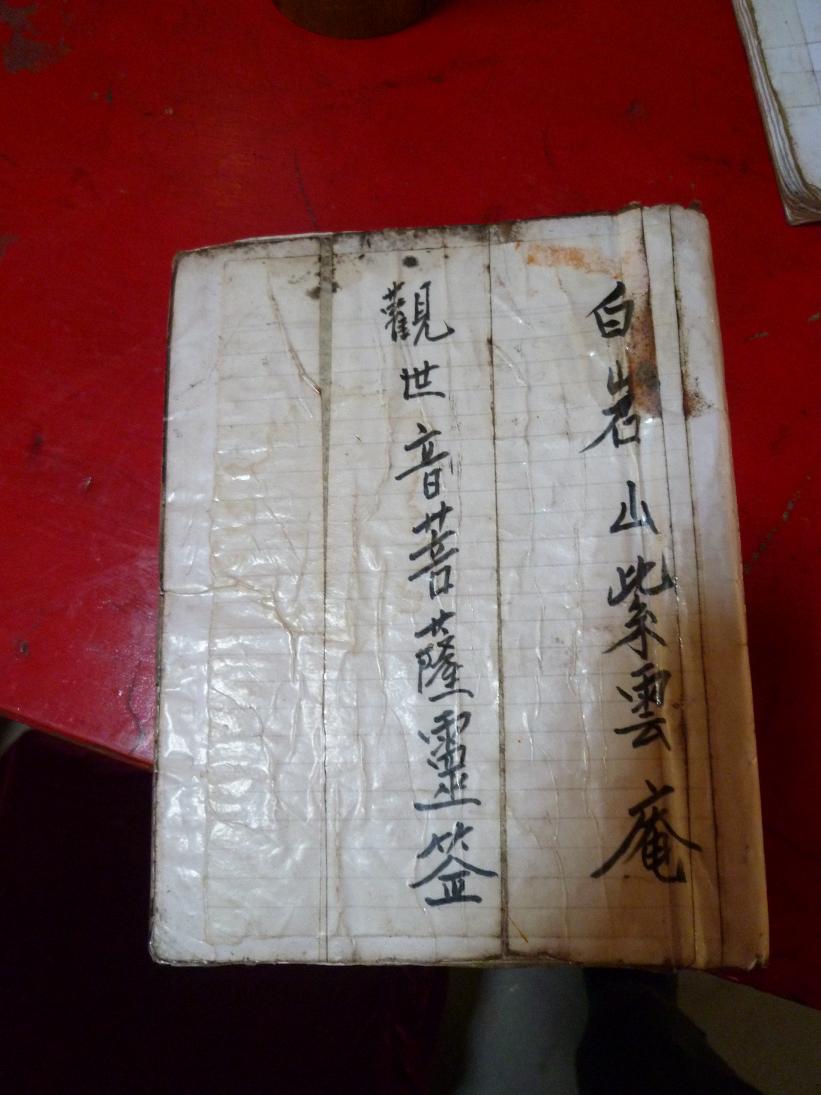 白岩山紫雲庵
觀世音菩薩靈签